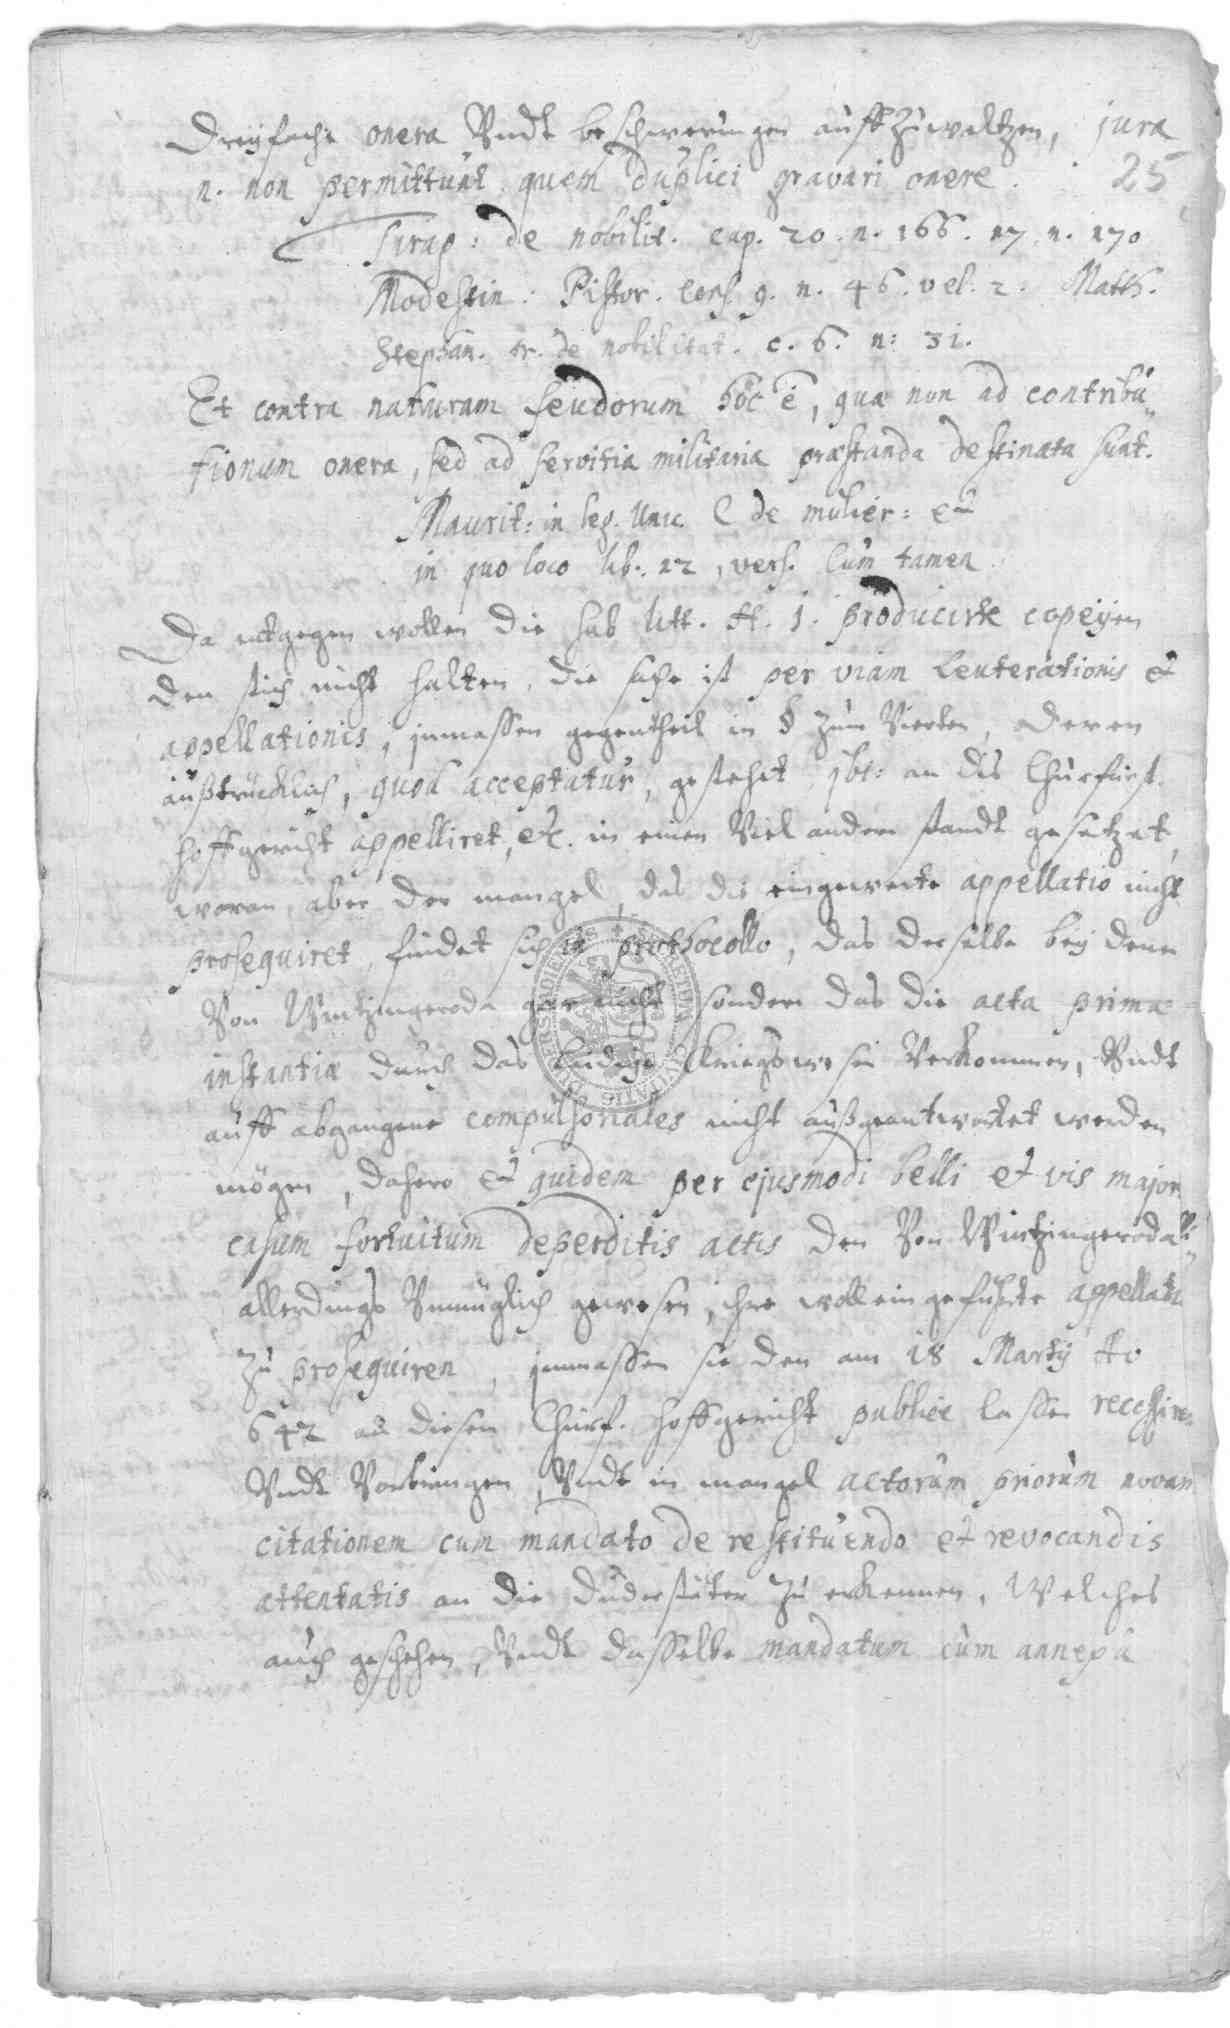 Dreyfache onera Vndt beschwerungen auffzuwaltzen, jura
25
n. non permittunt quem duplici gravari onere.
Tiraq: de nobilit. cap. 20. n. 166. 17. n. 170
Modestin: Pistor. Cons. 9. n. 46. vol. 2. Matth.
Stephan. tr. de nobilitat. c. 6. n: 31.
Et contra naturam feudorum hoc e, quæ non ad contribu-
tionum onera, sed ad servitia militaria præstanda destinata sunt.
Maurit: in leg. Unic. C de mulier: et
in quo loco lib. 12, vers. Cum tamen
Da entgegen wollen die sub litt. H. j. producirte copeyen
den stich nicht halten, die sache ist per viam leuterationis et
appellationis, inmassen gegentheil in § zum Vierten, deren
außtrücklich, quod acceptatur, gestehet, ibi: an das Churfürst.
hoffgericht appelliret, etc. in einen Viel andern standt gesetzet,
woran aber der mangel, das die eingewente appellatio nicht
prosequiret, findet sich in prothocollo, das derselbe bey denen
Von Wintzingeroda gar nicht sondern das die acta primæ
instantiæ durch das leidige Kriegswesen Verkommen, Vndt
auff abgangene compulsoriales nicht außgeantwortet werden
mögen, dahero et quidem per ejusmodi belli et vis major.
casum fortuitum deperditis actis den Von Wintzingeroda
allerdings Vnmüglich gewesen, ihre woll eingeführte appellati
zu prosequiren, inmassen sie den am 18 Martij Ao
642 an diesen Churf. hoffgericht publice lassen recessire
Vndt Vorbringen, Vndt in mangel actorum priorum novam
citationem cum mandato de restituendo et revocandis
attentatis an die Duderstäter zu erkennen, Welches
auch geschehen, Vndt dasselbe mandatum cum annexa